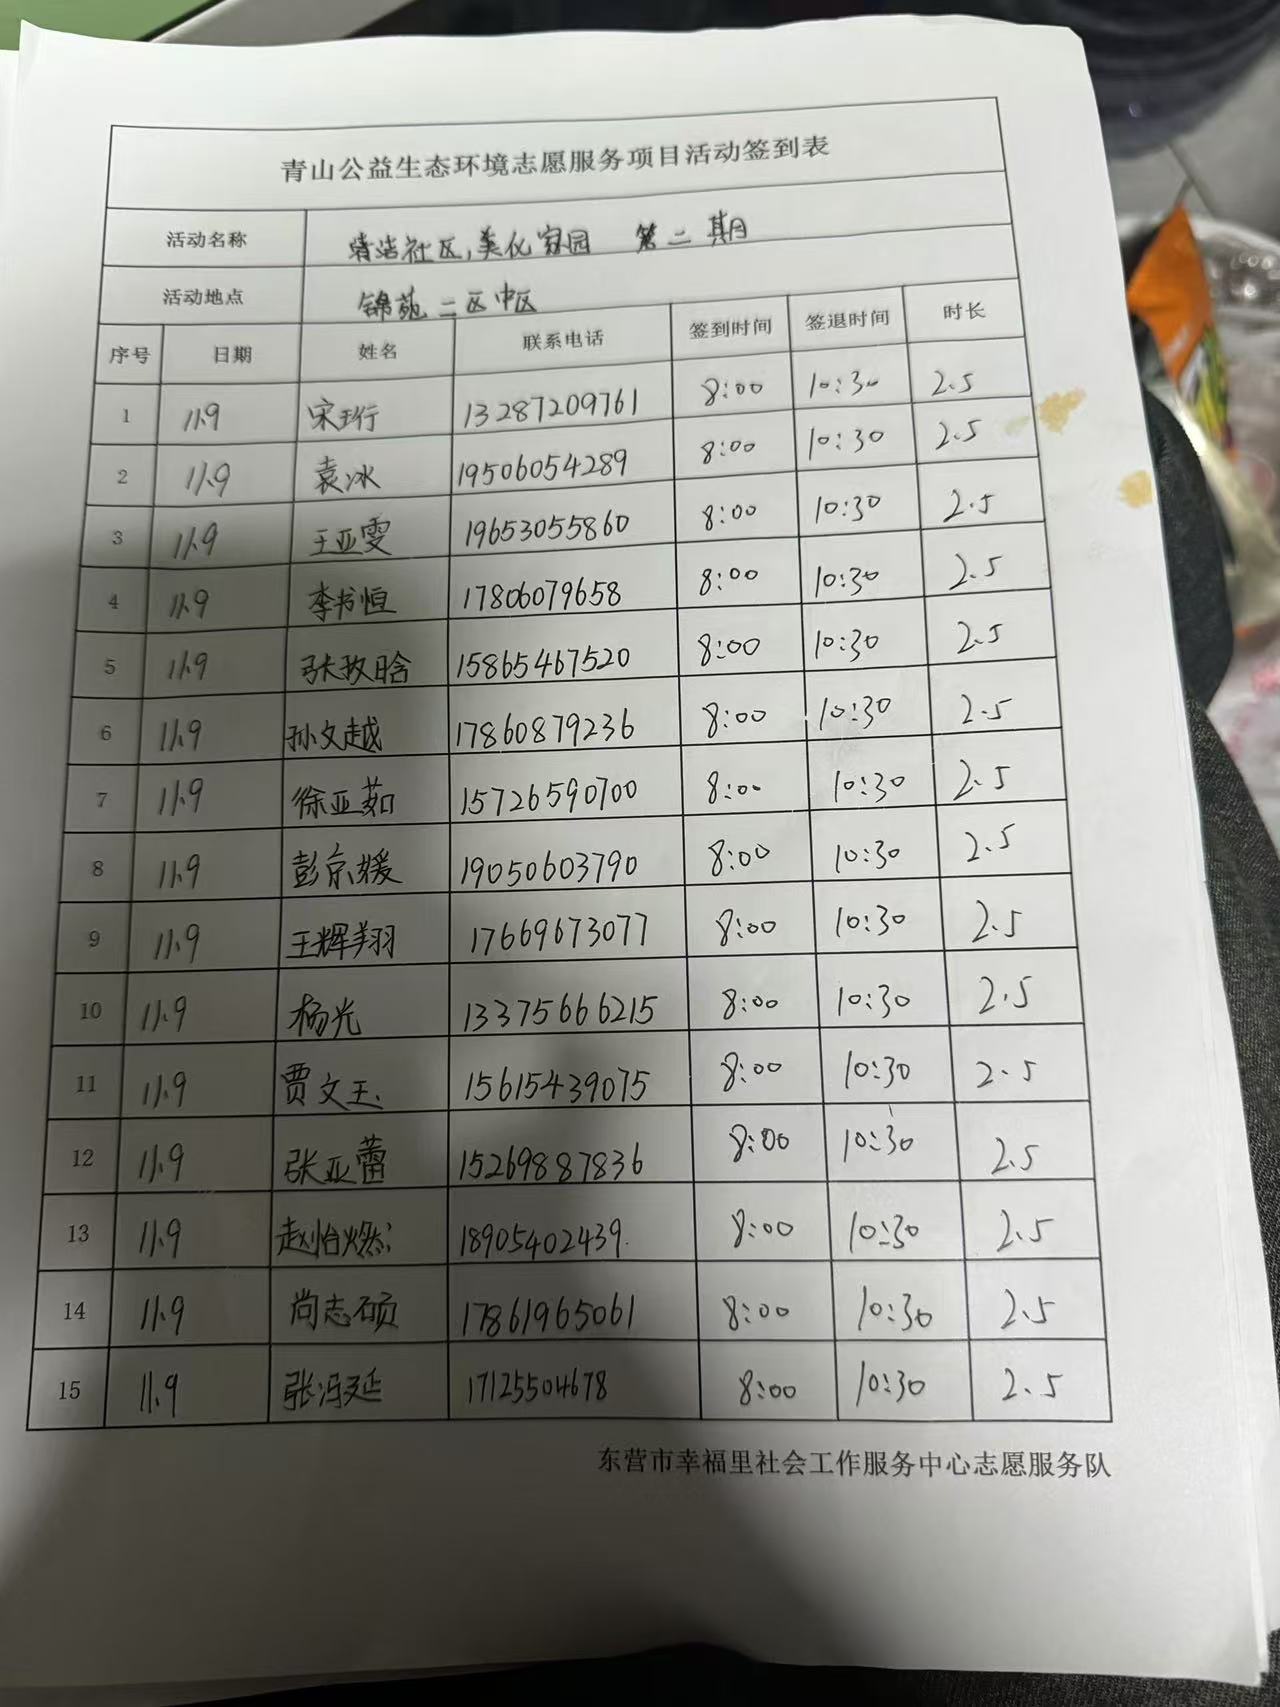 青山公益生态环境志愿服务项目活动签到表
活动名称 清洁社区,美化家园 第二期
活动地点 锦苑二区中区
序号 日期 姓名 联系电话 签到时间 签退时间 时长
1 11.9 宋珩 13287209761 8:00 10:30 2.5
2 11.9 袁冰 19506054289 8:00 10:30 2.5
3 11.9 王亚雯 19653055860 8:00 10:30 2.5
4 11.9 李书恒 17806079658 8:00 10:30 2.5
5 11.9 张玫晗 15865467520 8:00 10:30 2.5
6 11.9 孙文越 17860879236 8:00 10:30 2.5
7 11.9 徐亚茹 15726590700 8:00 10:30 2.5
8 11.9 彭京媛 19050603790 8:00 10:30 2.5
9 11.9 王辉翔 17669673077 8:00 10:30 2.5
10 11.9 杨光 13375666215 8:00 10:30 2.5
11 11.9 贾文玉 15615439075 8:00 10:30 2.5
12 11.9 张亚蕾 15269887836 8:00 10:30 2.5
13 11.9 赵怡燃 18905402439 8:00 10:30 2.5
14 11.9 尚志硕 17861965061 8:00 10:30 2.5
15 11.9 张冯延 17125504678 8:00 10:30 2.5
东营市幸福里社会工作服务中心志愿服务队